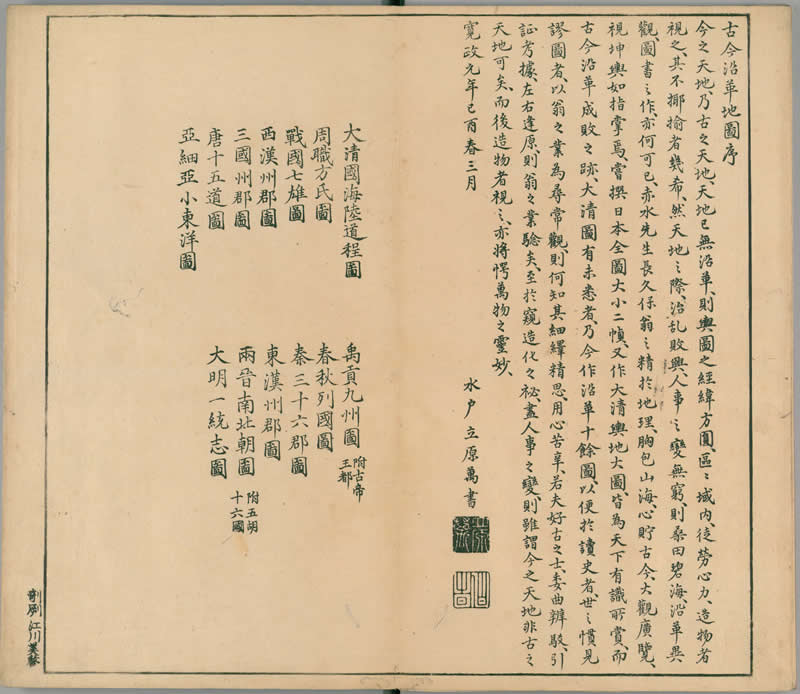 古今沿革地圖序
今之天地、乃古之天地、天地已無沿革、則輿圖之經緯方圓、區〻域內、徒勞心力、造物者
視之、其不揶揄者幾希、然天地〻際、治乱敗興、人事〻變無窮、則桑田碧海、沿革異
觀、圖書〻作、亦何可已、赤水先生長久保翁〻精於地理、胸包山海、心貯古今、大觀廣覽、
視坤輿如指掌焉、嘗撰日本全圖大小二幀、又作大清輿地大圖、皆為天下有識所賞、而
古今沿革成敗之跡、大清圖有未悉者、乃今作沿革十餘圖、以便於讀史者、世〻慣見
謬圖者、以翁之業為尋常觀、則何知其細繹精思、用心苦辛、若夫好古之士、委曲辨駁、引
証考據、左右逢原、則翁之業驗矣、至於窺造化之祕、盡人事之變、則雖謂今之天地非古之
天地可矣、而後造物者視〻、亦將愕萬物之靈妙、
寬政元年己酉春三月
水戶立原萬書
大清國海陸道程圖
禹貢九州圖 附古帝王都
周職方氏圖
春秋列國圖
戰國七雄圖
秦三十六郡圖
西漢州郡圖
東漢州郡圖
三國州郡圖
兩晉南北朝圖 附五胡十六國
唐十五道圖
大明一統志圖
亞細亞小東洋圖
剞劂 江川